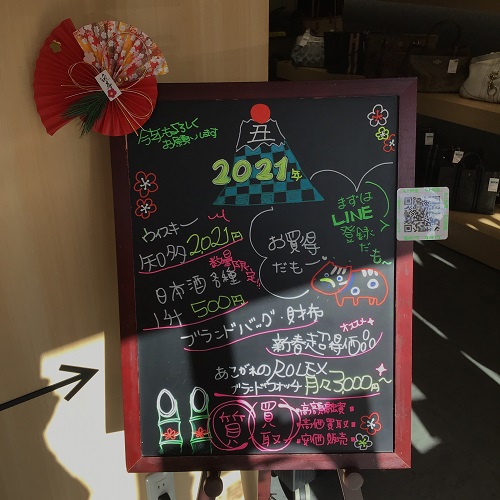 今年もよろしく
お願いします
丑
2021年
まずは
LINE
登録だ
も~
ウイスキー
知多2021円
数量限定!!
お買得
だも~
日本酒各種
1升500円
ブランドバッグ・財布
オススメ
新春超得価品
あこがれのROLEX
ブランドウォッチ月々3000円~
質
買取
高額融資
高価買取
安価販売